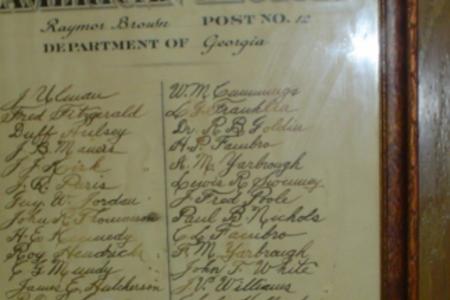 Raymor Brown POST NO. 12
DEPARTMENT OF Georgia
J Ulman
Fred Fitzgerald
Duff Hulsey
J. B. Maners
J. J. Kirk
J. R. Paris
Guy W. Jordan
John H. Thomason
H. E. Kennedy
Roy Headrick
C G Mundy
James E. Hutcherson
W. M. Cummings
L. G. Franklin
Dr. R. B. Goldin
H. P. Fambro
R. M. Yarbrough
Lewis R. Sweeney
J Fred Poole
Paul B. Nichols
C. L. Fambro
F. M. Yarbrough
John T. White
J. V. Williams